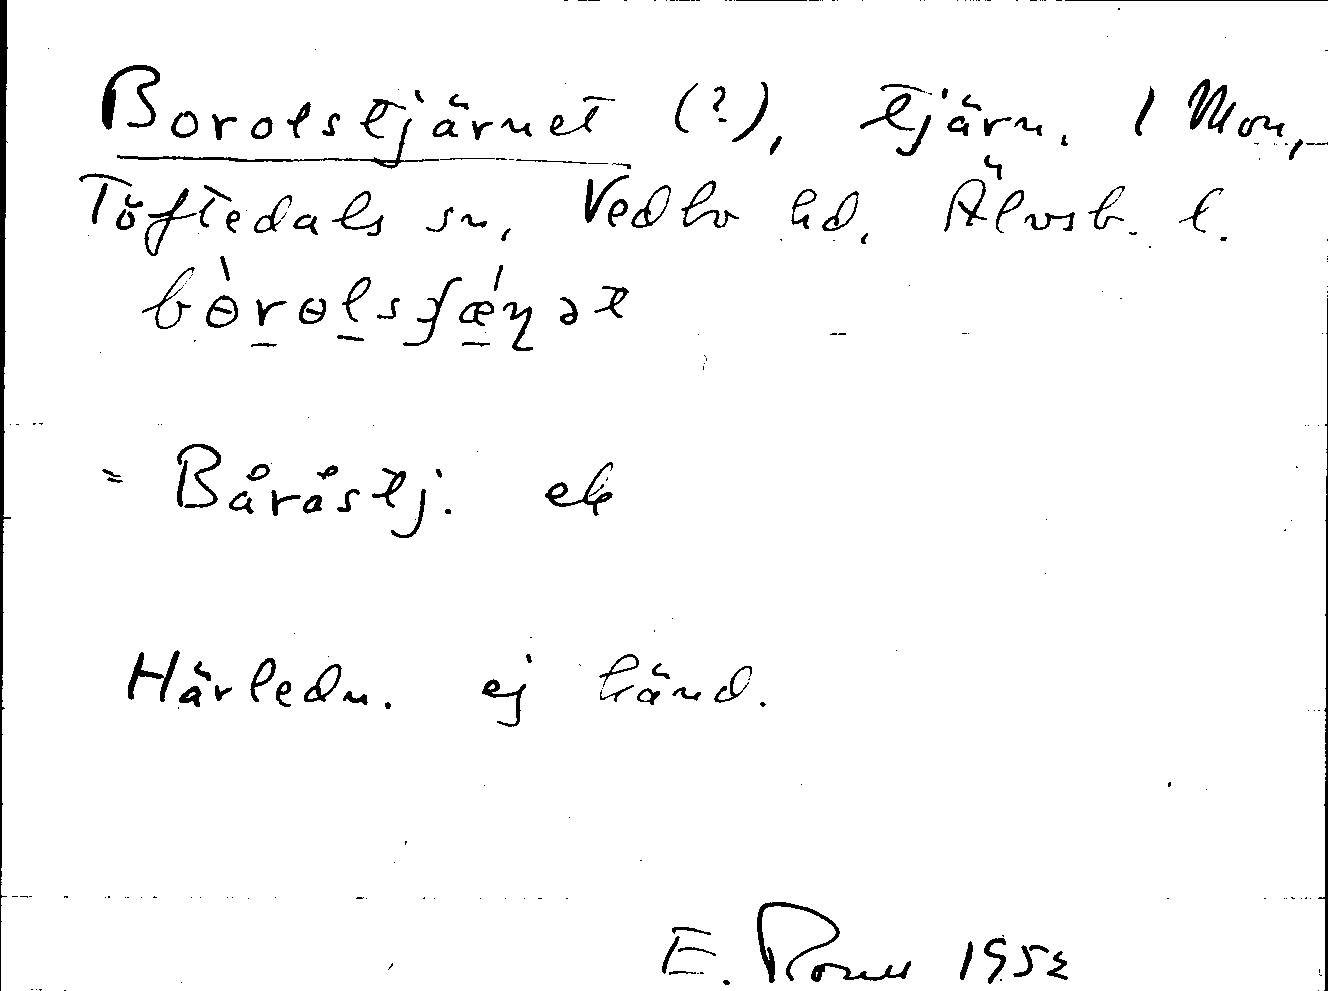 Borolstjärnet (?), tjärn. / Mon,
Töftedals sn, Vedbo hd. Älvsb. l.
bòrolsʃǽŋət
= Båråstj. ek
Härledn. ej känd.
E. 1952